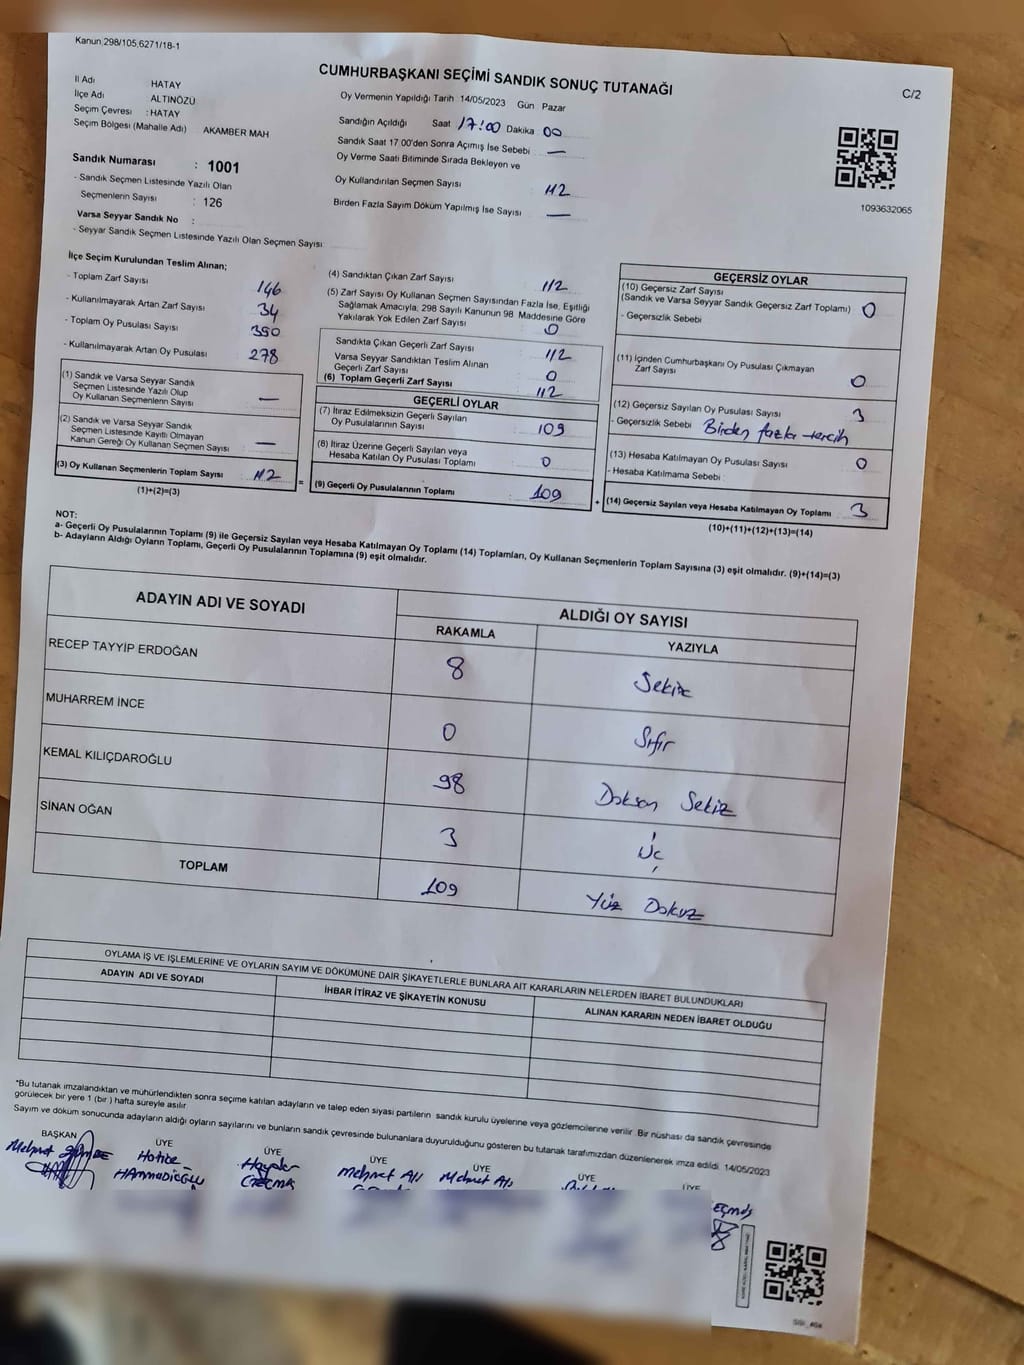 Kanun 298/105,6271/18-1
CUMHURBAŞKANI SEÇİMİ SANDIK SONUÇ TUTANAĞI
C/2
İl Adı HATAY
İlçe Adı ALTINÖZÜ
Seçim Çevresi : HATAY
Seçim Bölgesi (Mahalle Adı) AKAMBER MAH
Sandık Numarası : 1001
- Sandık Seçmen Listesinde Yazılı Olan
Seçmenlerin Sayısı : 126
Varsa Seyyar Sandık No :
- Seyyar Sandık Seçmen Listesinde Yazılı Olan Seçmen Sayısı:
Oy Vermenin Yapıldığı Tarih 14/05/2023 Gün Pazar
Sandığın Açıldığı Saat 17:00 Dakika 00
Sandık Saat 17.00'den Sonra Açımış İse Sebebi —
Oy Verme Saati Bitiminde Sırada Bekleyen ve
Oy Kullandırılan Seçmen Sayısı 112
Birden Fazla Sayım Döküm Yapılmış İse Sayısı —
1093632065
İlçe Seçim Kurulundan Teslim Alınan;
- Toplam Zarf Sayısı 146
- Kullanılmayarak Artan Zarf Sayısı 34
- Toplam Oy Pusulası Sayısı 390
- Kullanılmayarak Artan Oy Pusulası 278
(1) Sandık ve Varsa Seyyar Sandık
Seçmen Listesinde Yazılı Olup
Oy Kullanan Seçmenlerin Sayısı —
(2) Sandık ve Varsa Seyyar Sandık
Seçmen Listesinde Kayıtlı Olmayan
Kanun Gereği Oy Kullanan Seçmen Sayısı —
(3) Oy Kullanan Seçmenlerin Toplam Sayısı 112
(1)+(2)=(3)
=
(4) Sandıktan Çıkan Zarf Sayısı 112
(5) Zarf Sayısı Oy Kullanan Seçmen Sayısından Fazla İse, Eşitliği
Sağlamak Amacıyla, 298 Sayılı Kanunun 98. Maddesine Göre
Yakılarak Yok Edilen Zarf Sayısı 0
Sandıkta Çıkan Geçerli Zarf Sayısı 112
Varsa Seyyar Sandıktan Teslim Alınan
Geçerli Zarf Sayısı 0
(6) Toplam Geçerli Zarf Sayısı 112
GEÇERLİ OYLAR
(7) İtiraz Edilmeksizin Geçerli Sayılan
Oy Pusulalarının Sayısı 109
(8) İtiraz Üzerine Geçerli Sayılan veya
Hesaba Katılan Oy Pusulası Toplamı 0
(9) Geçerli Oy Pusulalarının Toplamı 109
+
GEÇERSİZ OYLAR
(10) Geçersiz Zarf Sayısı
(Sandık ve Varsa Seyyar Sandık Geçersiz Zarf Toplamı) 0
- Geçersizlik Sebebi
(11) İçinden Cumhurbaşkanı Oy Pusulası Çıkmayan
Zarf Sayısı 0
(12) Geçersiz Sayılan Oy Pusulası Sayısı 3
- Geçersizlik Sebebi Birden fazla tercih
(13) Hesaba Katılmayan Oy Pusulası Sayısı 0
- Hesaba Katılmama Sebebi :
(14) Geçersiz Sayılan veya Hesaba Katılmayan Oy Toplamı 3
(10)+(11)+(12)+(13)=(14)
NOT:
a- Geçerli Oy Pusulalarının Toplamı (9) ile Geçersiz Sayılan veya Hesaba Katılmayan Oy Toplamı (14) Toplamları, Oy Kullanan Seçmenlerin Toplam Sayısına (3) eşit olmalıdır. (9)+(14)=(3)
b- Adayların Aldığı Oyların Toplamı, Geçerli Oy Pusulalarının Toplamına (9) eşit olmalıdır.
ADAYIN ADI VE SOYADI
ALDIĞI OY SAYISI
RAKAMLA YAZIYLA
RECEP TAYYİP ERDOĞAN 8 Sekiz
MUHARREM İNCE 0 Sıfır
KEMAL KILIÇDAROĞLU 98 Doksan Sekiz
SİNAN OĞAN 3 Üç
TOPLAM 109 Yüz Dokuz
OYLAMA İŞ VE İŞLEMLERİNE VE OYLARIN SAYIM VE DÖKÜMÜNE DAİR ŞİKAYETLERLE BUNLARA AİT KARARLARIN NELERDEN İBARET BULUNDUKLARI
ADAYIN ADI VE SOYADI
İHBAR İTİRAZ VE ŞİKAYETİN KONUSU
ALINAN KARARIN NEDEN İBARET OLDUĞU
*Bu tutanak imzalandıktan ve mühürlendikten sonra seçime katılan adayların ve talep eden siyasi partilerin sandık kurulu üyelerine veya gözlemcilerine verilir. Bir nüshası da sandık çevresinde
görülecek bir yere 1 (bir) hafta süreyle asılır
Sayım ve döküm sonucunda adayların aldığı oyların sayılarını ve bunların sandık çevresinde bulunanlara duyurulduğunu gösteren bu tutanak tarafımızdan düzenlenerek imza edildi. 14/05/2023
BAŞKAN ÜYE ÜYE ÜYE ÜYE ÜYE ÜYE
Mehmet
Hatice
HAMMADİOĞLU
GEÇMİŞ
Mehmet Ali
Mehmet Ali